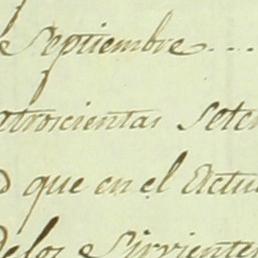 e Septiembre ....
atroscientas Sete
que en el Actu
delos Sirviente